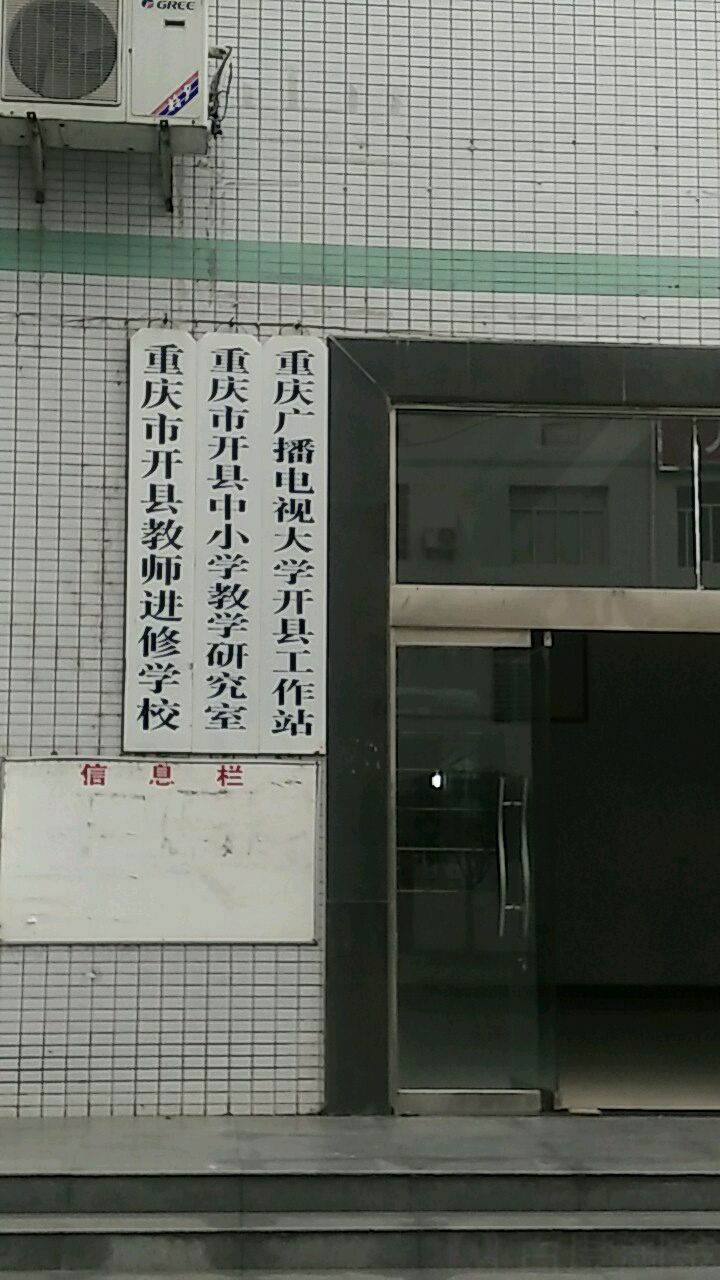 GREE
重庆市开县教师进修学校
重庆市开县中小学教学研究室
重庆广播电视大学开县工作站
信息栏